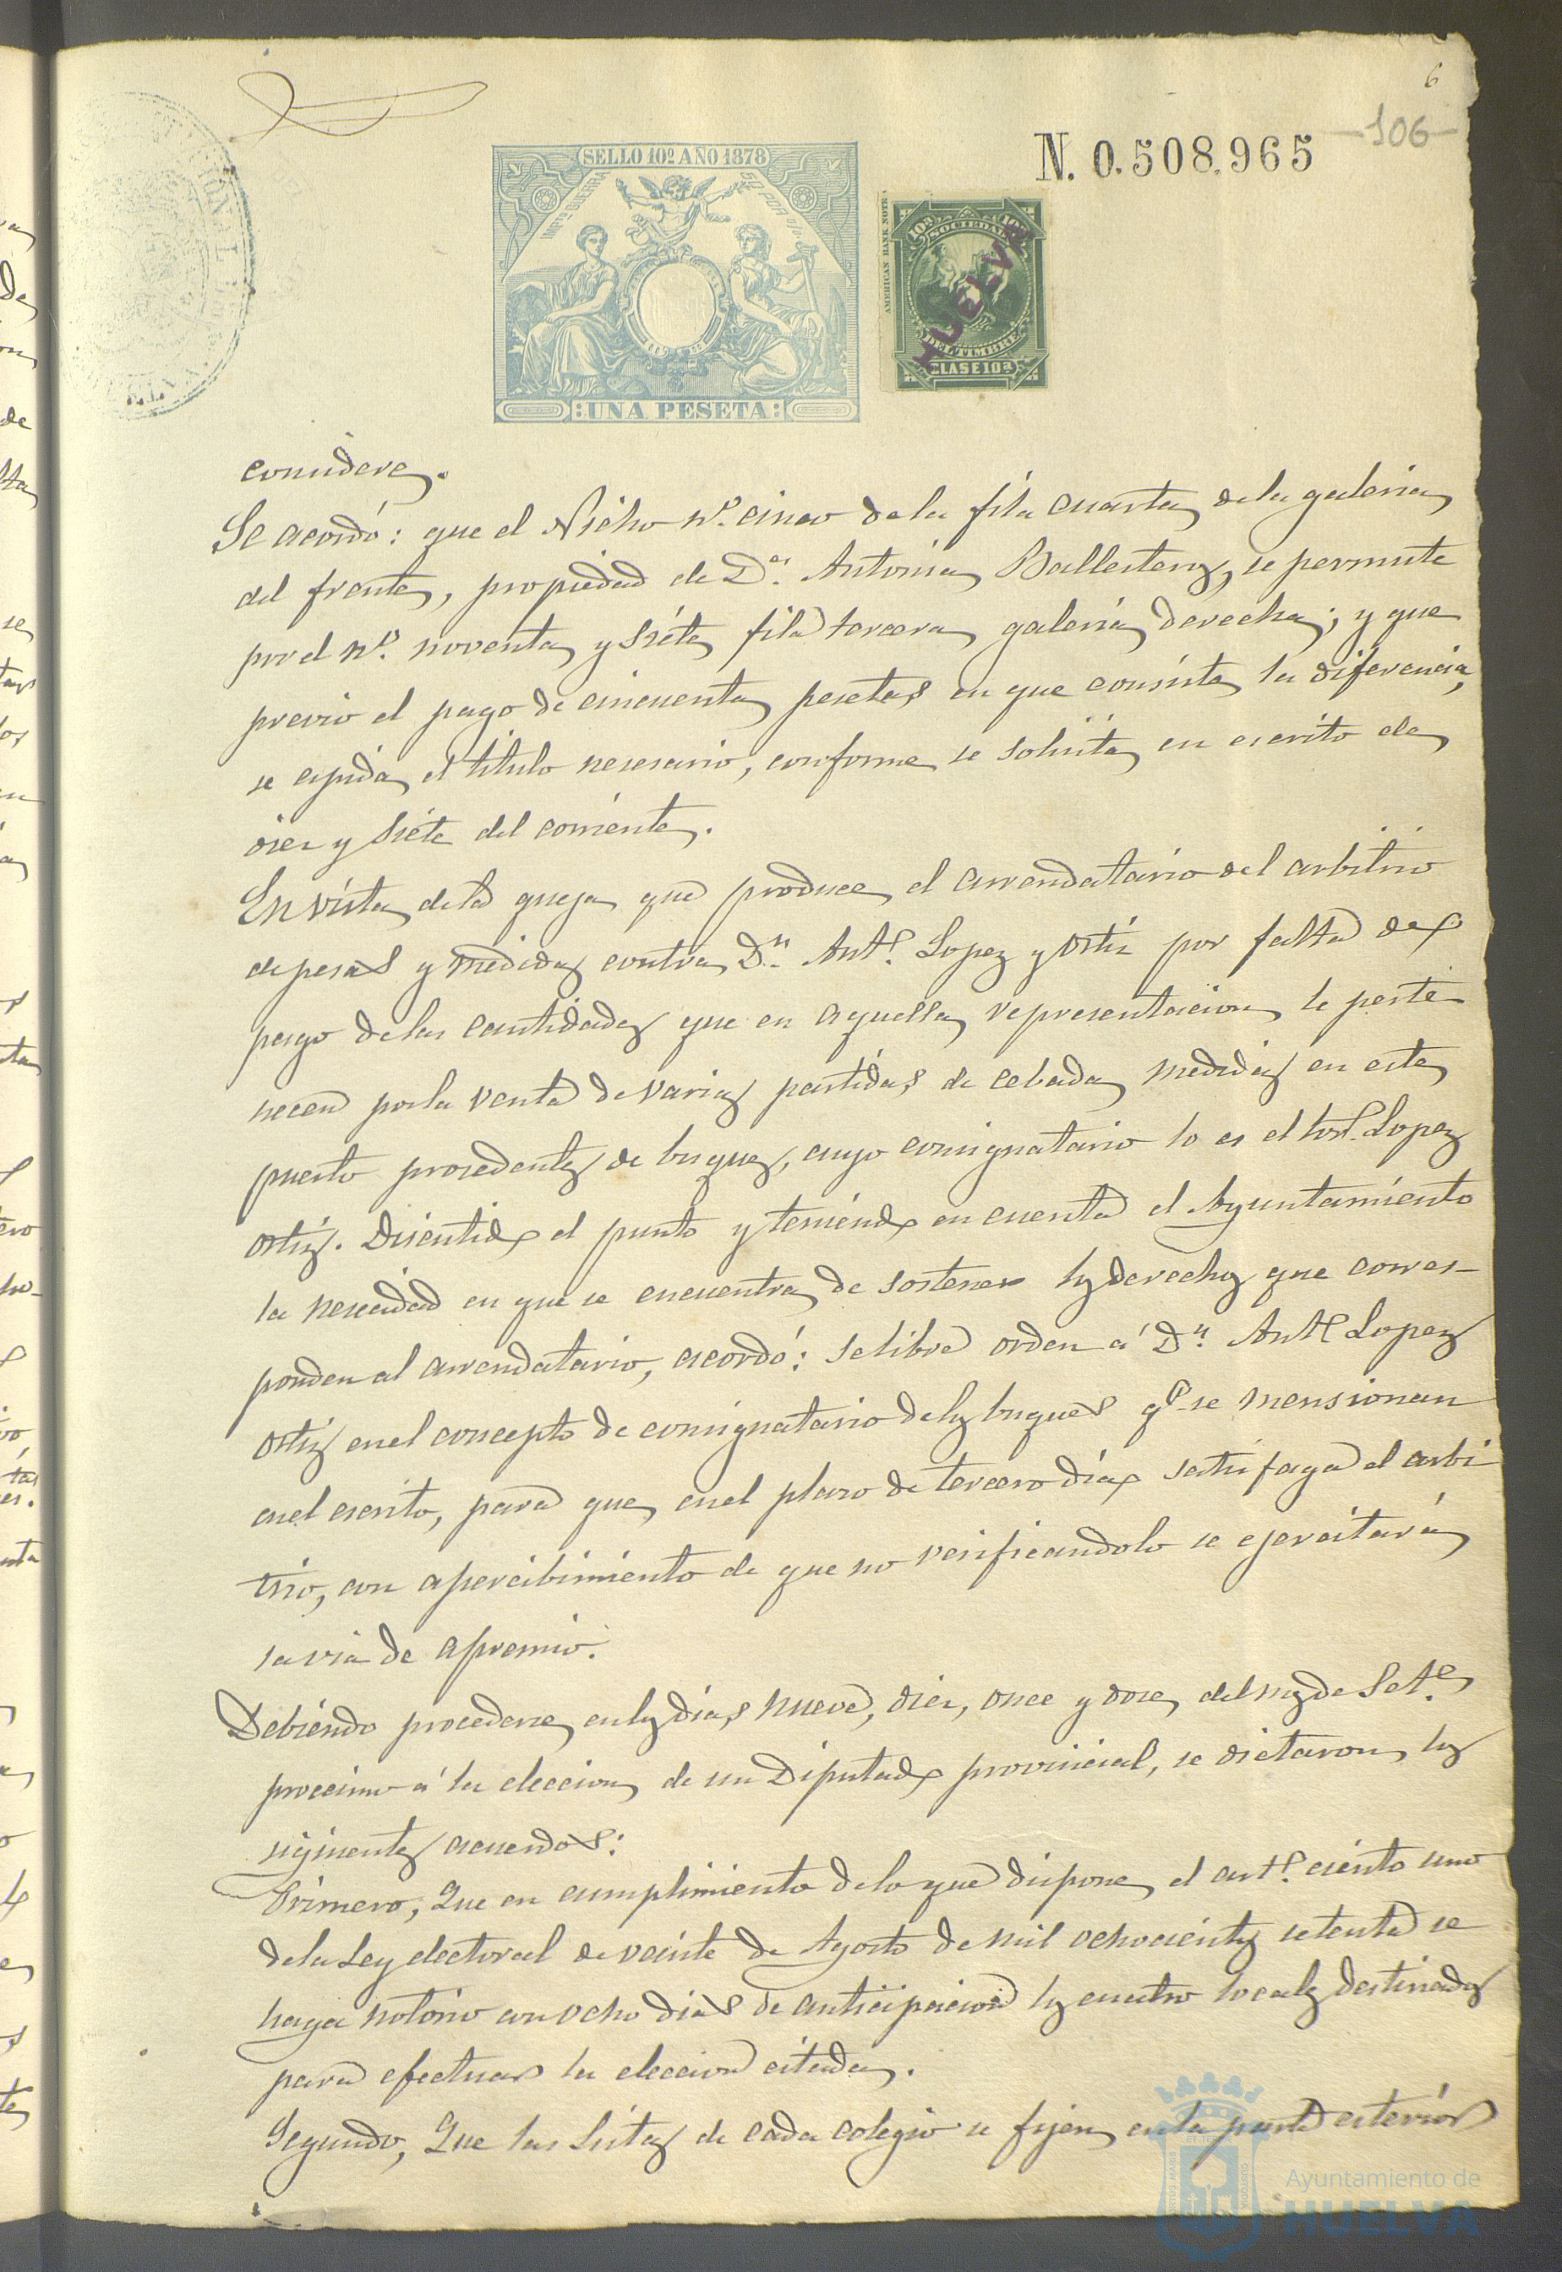 6
106
N. 0.508.965
SELLO 10º AÑO 1878
UNA PESETA
AMERICAN BANK NOTE
10ª 10ª
SOCIEDAD
HUELVA
DEL TIMBRE
CLASE 10ª
considere.
Se acordó: que el Nicho nº. cinco de la fila cuarta de la galeria
del frente, propiedad de Dª. Antonia Ballesteros, se permute
por el nº. noventa y siete fila tercera galeria derecha; y que
previo el pago de cincuenta pesetas en que consiste la diferencia,
se expida el titulo nesesario, conforme se solicita en escrito de
diez y siete del corriente.
En vista de la queja que produce el arrendatario del arbitrio
de pesas y medidas contra Dn. Antº. Lopez y Ortiz por falta de
pago de las cantidades que en aquella representacion le perte
necen por la venta de varias partidas de cebada medidas en este
puerto prosedentes de buques, cuyo consignatario lo es el Lopez
Ortiz. Discutido el punto y teniendo en cuenta el Ayuntamiento
la nesecidad en que se encuentra de sostener los derechos que corres-
ponden al arrendatario, acordó: se libre orden á Dn. Antº Lopez
Ortiz en el concepto de consignatario de los buques qe. se mensionan
en el escrito, para que en el plazo de tercero dia satisfaga el arbi
trio, con apercibimiento de que no verificandolo se ejercitará
la via de apremio.
Debiendo procederse en los dias nueve, diez, once y doce del mes de Sete.
procsimo á la eleccion de un Diputado provincial, se dictaron los
siguientes acuerdos:
Primero, Que en cumplimiento de lo que dispone el artº. ciento uno
de la Ley electoral de veinte de Agosto de mil ochocientos setenta se
haga notorio con ocho dias de anticipacion los cuatro locales destinados
para efectuar la eleccion citada.
Segundo, Que las listas de cada colegio se fijen en la parte esterior
Ayuntamiento de
HUELVA